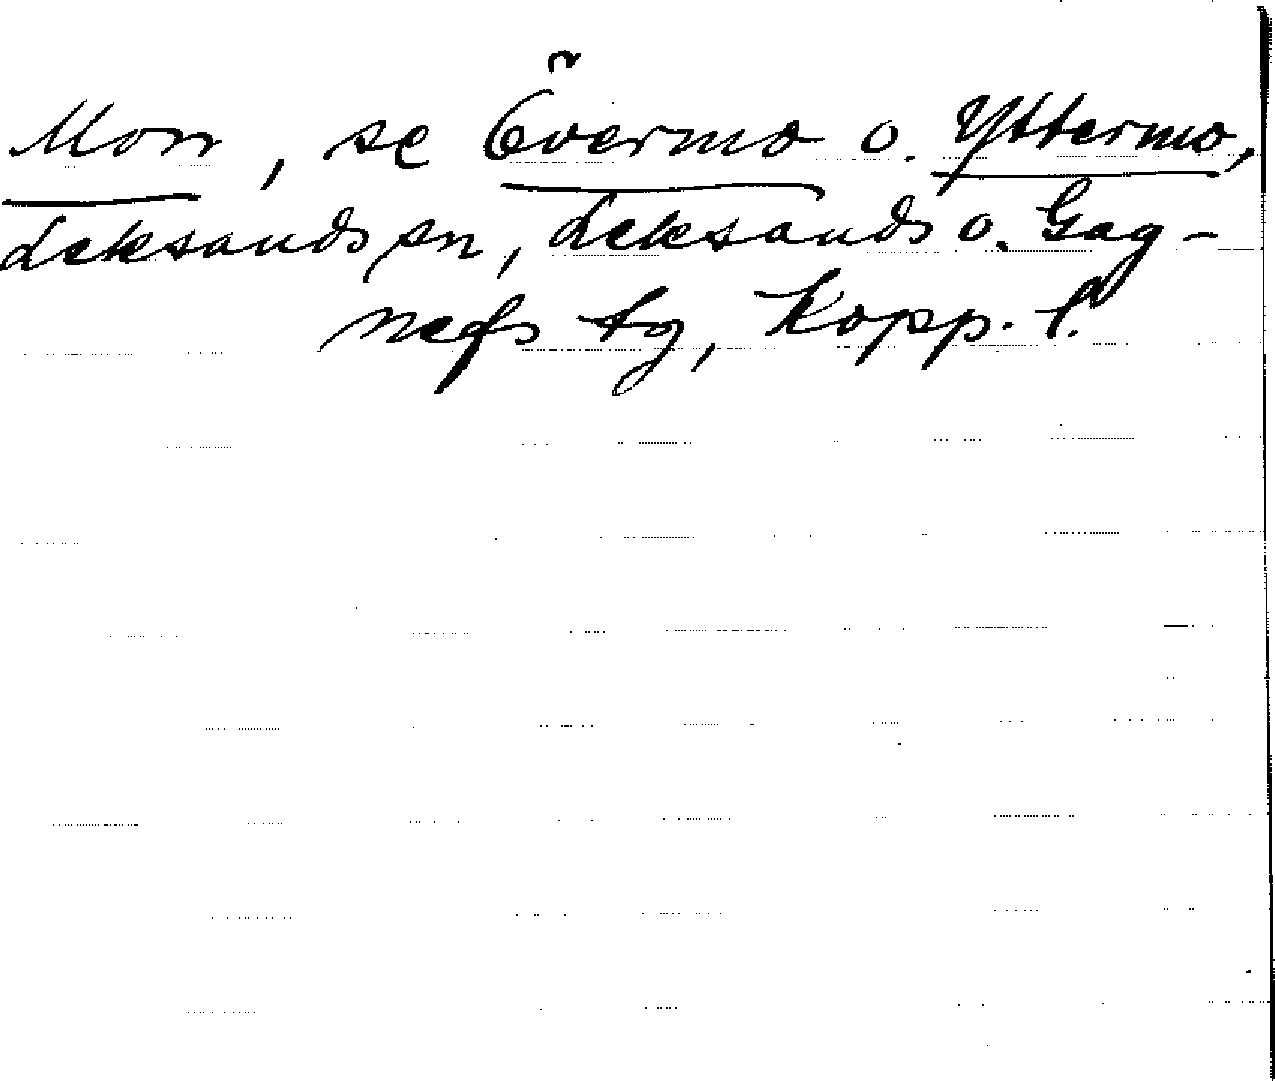 Mon, se Övermo o. Yttermo,
Leksands sn, Leksands o. Gag-
nefs tg, Kopp. l.